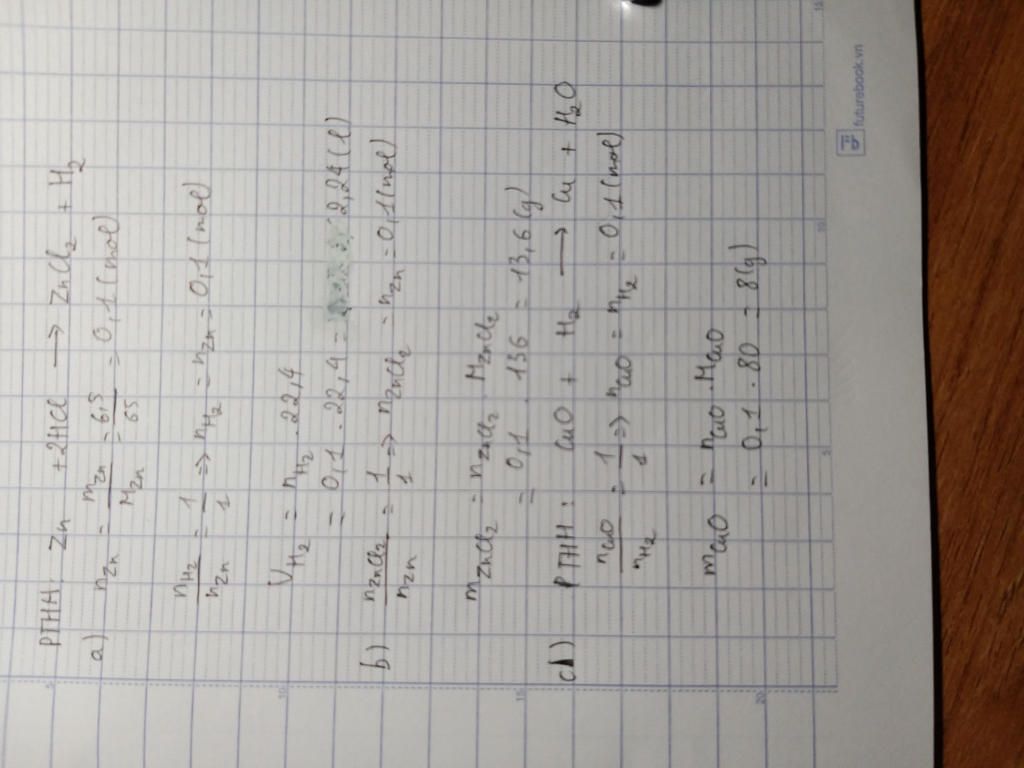 PTHH: Zn + 2HCl → ZnCl₂ + H₂
a) n_Zn = m_Zn / M_Zn = 6,5 / 65 = 0,1 (mol)
n_H₂ / n_Zn = 1 / 1 => n_H₂ = n_Zn = 0,1 (mol)
V_H₂ = n_H₂ . 22,4
= 0,1 . 22,4 = 2,24 (l)
b) n_ZnCl₂ / n_Zn = 1 / 1 => n_ZnCl₂ = n_Zn = 0,1 (mol)
m_ZnCl₂ = n_ZnCl₂ . M_ZnCl₂
= 0,1 . 136 = 13,6 (g)
c) PTHH: CuO + H₂ → Cu + H₂O
n_CuO / n_H₂ = 1 / 1 => n_CuO = n_H₂ = 0,1 (mol)
m_CuO = n_CuO . M_CuO
= 0,1 . 80 = 8 (g)
5
10
15
20
5
10
15
futurebook.vn